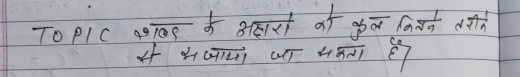 TOPIC शब्द के अक्षरों को कुल कितने तरीके
से सजाया जा सकता है?